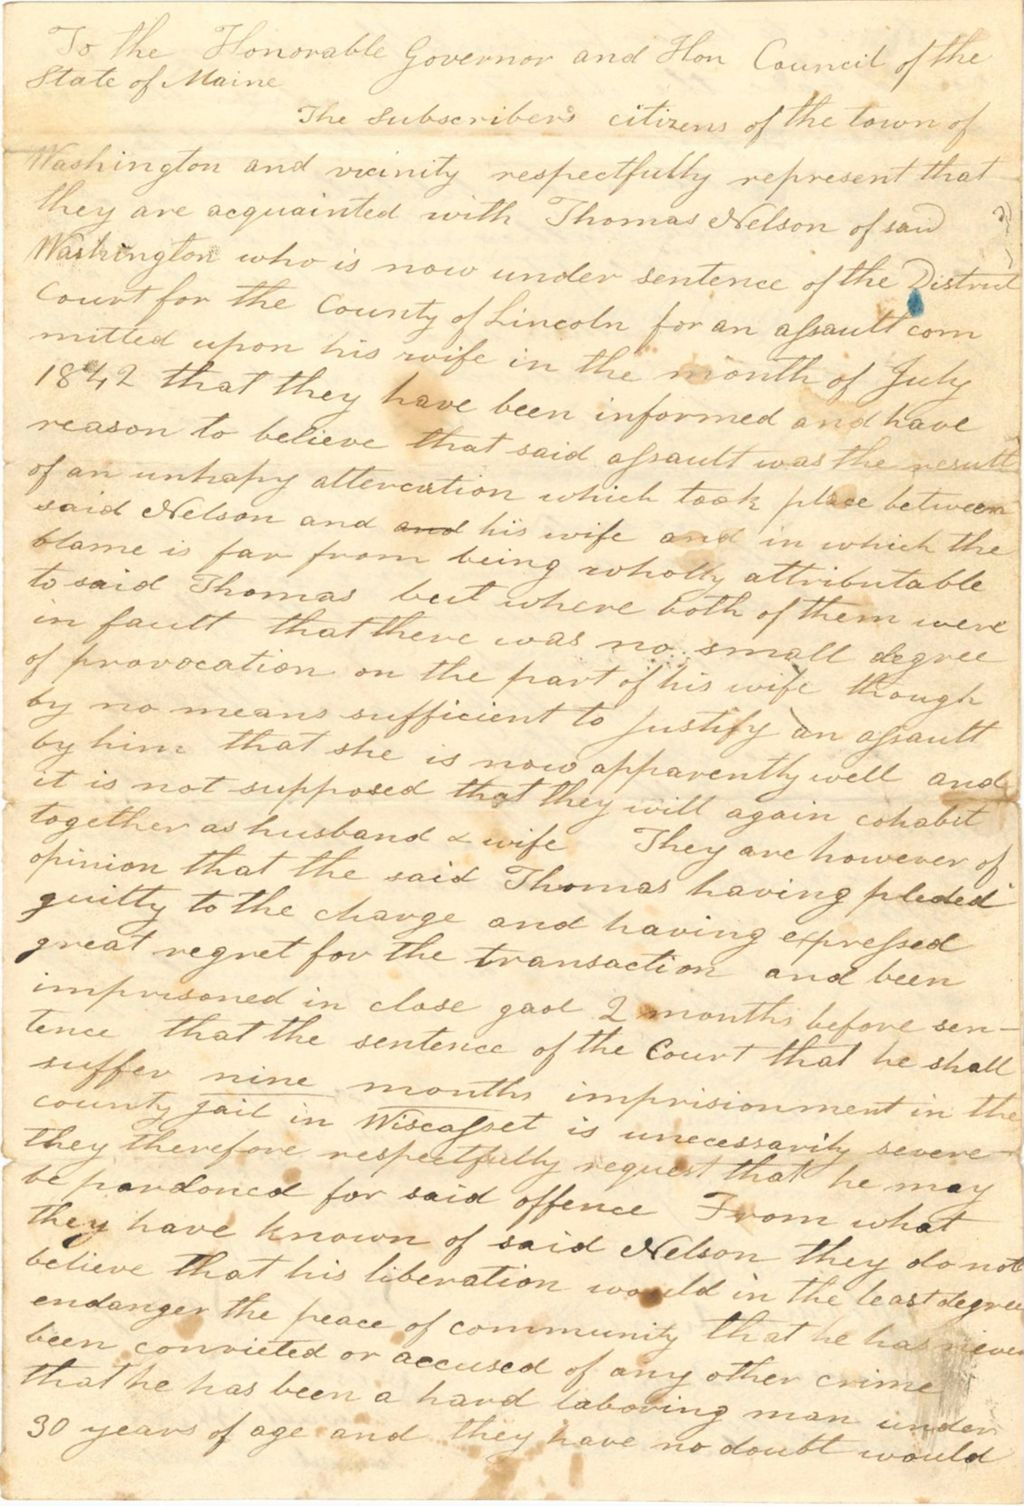 To the Honorable Governor and Hon Council of the
State of Maine
The Subscribers citizens of the town of
Washington and vicinity respectfully represent that
they are acquainted with Thomas Nelson of said
Washington who is now under sentence of the District
Court for the County of Lincoln for an assault com
mitted upon his wife in the month of July
1842 that they have been informed and have
reason to believe that said assault was the result
of an unhapy altercation which took place between
said Nelson and and his wife and in which the
blame is far from being wholly attributable
to said Thomas but where both of them were
in fault that there was no small degree
of provocation on the part of his wife though
by no means sufficient to justify an assault
by him that she is now apparently well and
it is not supposed that they will again cohabit
together as husband & wife They are however of
opinion that the said Thomas having pleded
guilty to the charge and having expressed
great regret for the transaction and been
imprisoned in close gaol 2 months before sen-
tence that the sentence of the Court that he shall
suffer nine months imprisionment in the
county jail in Wiscasset is unecessarily severe
they therefore respectfully request that he may
be pardoned for said offence From what
they have known of said Nelson they do not
believe that his liberation would in the least degree
endanger the peace of community that he has never
been convicted or accused of any other crime
that he has been a hard laboring man under
30 years of age and they have no doubt would